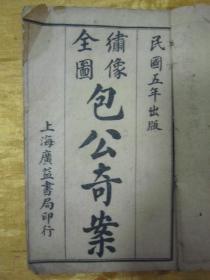 民國五年出版
繡像
全圖
包公奇案
上海廣益書局印行